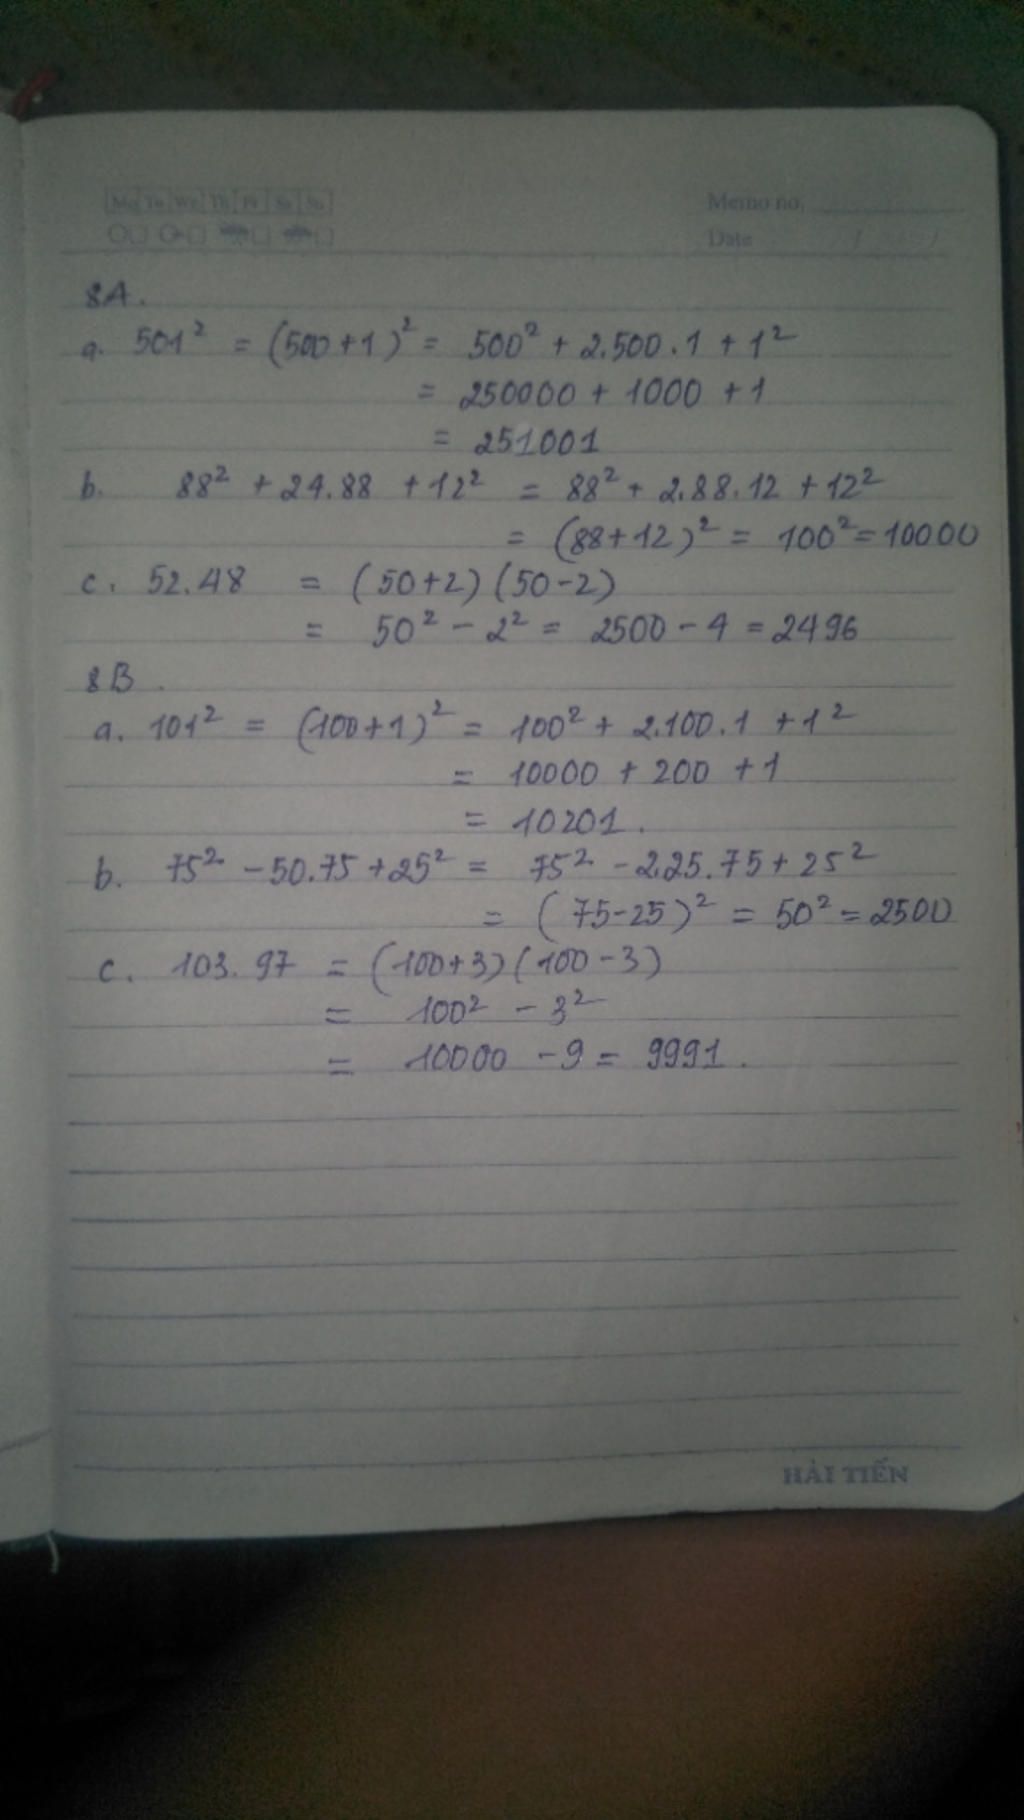 Mo Tu We Th Fr Sa Su
Memo no.
Date / /
8A.
a. 501² = (500+1)² = 500² + 2.500.1 + 1²
= 250000 + 1000 + 1
= 251001
b. 88² + 24.88 + 12² = 88² + 2.88.12 + 12²
= (88+12)² = 100² = 10000
c. 52.48 = (50+2)(50-2)
= 50² - 2² = 2500 - 4 = 2496
8B.
a. 101² = (100+1)² = 100² + 2.100.1 + 1²
= 10000 + 200 + 1
= 10201.
b. 75² - 50.75 + 25² = 75² - 2.25.75 + 25²
= (75-25)² = 50² = 2500
c. 103.97 = (100+3)(100-3)
= 100² - 3²
= 10000 - 9 = 9991.
HẢI TIẾN